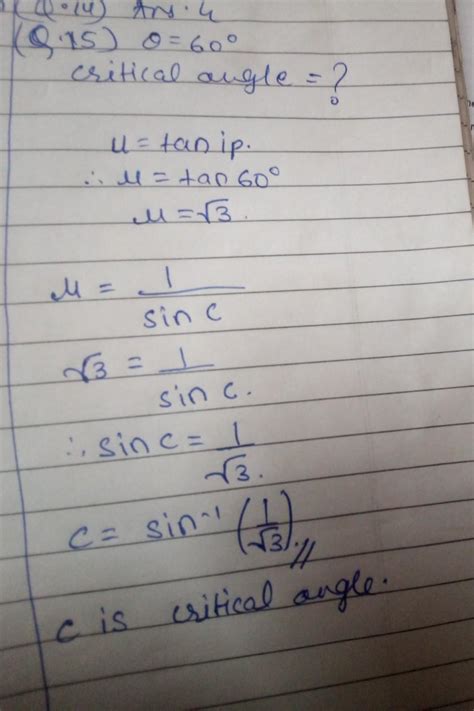 (Q.14) Ans. 4
(Q.15) θ = 60°
critical angle = ?
μ = tan ip.
∴ μ = tan 60°
μ = √3.
μ = 1/sin c
√3 = 1/sin c.
∴ sin c = 1/√3.
c = sin⁻¹ (1/√3).//
c is critical angle.